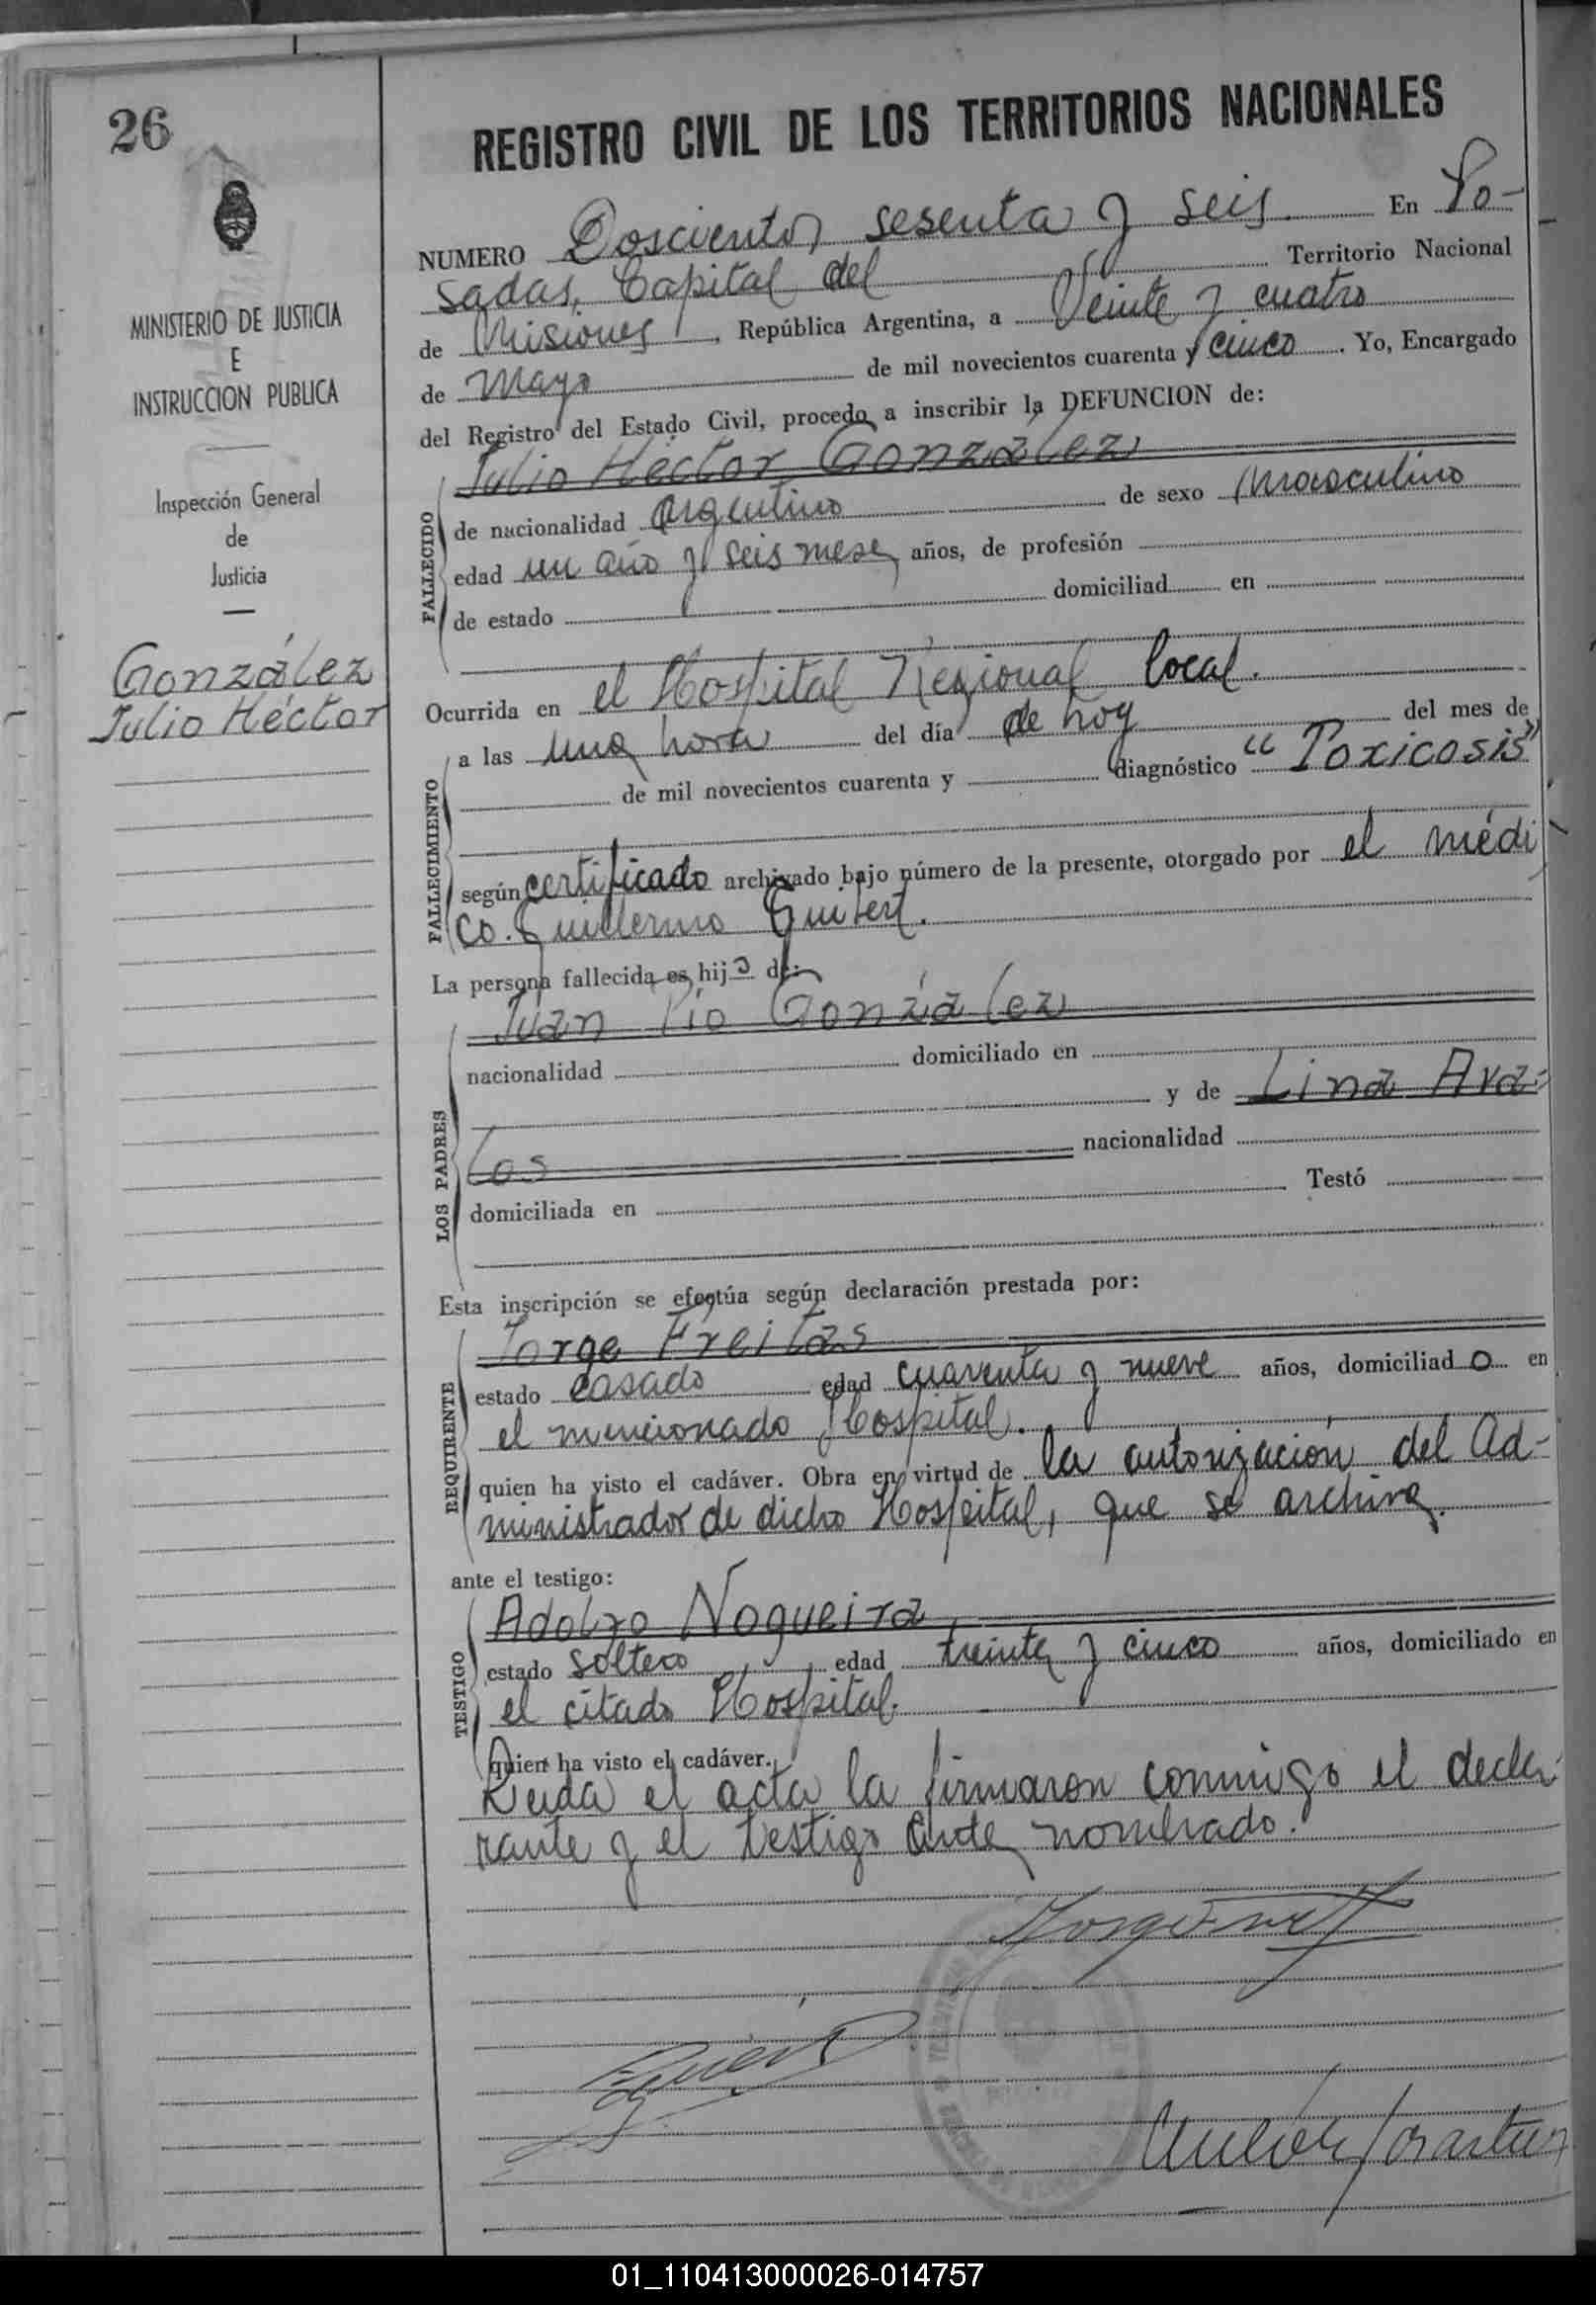 26
MINISTERIO DE JUSTICIA
E
INSTRUCCION PUBLICA
Inspección General
de
Justicia
González
Julio Héctor
REGISTRO CIVIL DE LOS TERRITORIOS NACIONALES
NUMERO Doscientos sesenta y seis. En Po-
sadas, Capital del Territorio Nacional
de Misiones, República Argentina, a Veinte y cuatro
de Mayo de mil novecientos cuarenta y cinco. Yo, Encargado
del Registro del Estado Civil, procedo a inscribir la DEFUNCION de:
FALLECIDO
Julio Héctor González
de nacionalidad argentino de sexo masculino
edad un año y seis meses años, de profesión
de estado domiciliad en
Ocurrida en el Hospital Regional local.
FALLECIMIENTO
a las una hora del día de hoy del mes de
de mil novecientos cuarenta y diagnóstico "Toxicosis"
según certificado archivado bajo número de la presente, otorgado por el médi
co. Guillermo Guibert.
La persona fallecida es hijo de:
LOS PADRES
Juan Pío González
nacionalidad domiciliado en
y de Lina Ava-
los nacionalidad
domiciliada en Testó
Esta inscripción se efectúa según declaración prestada por:
REQUIRENTE
Jorge Freitas
estado casado edad cuarenta y nueve años, domiciliado en
el mencionado Hospital.
quien ha visto el cadáver. Obra en virtud de la autorización del Ad-
ministrador de dicho Hospital, que se archiva.
ante el testigo:
TESTIGO
Adolfo Nogueira
estado soltero edad treinta y cinco años, domiciliado en
el citado Hospital.
quien ha visto el cadáver.
Leida el acta la firmaron conmigo el decla-
rante y el testigo antes nombrado.
01_110413000026-014757